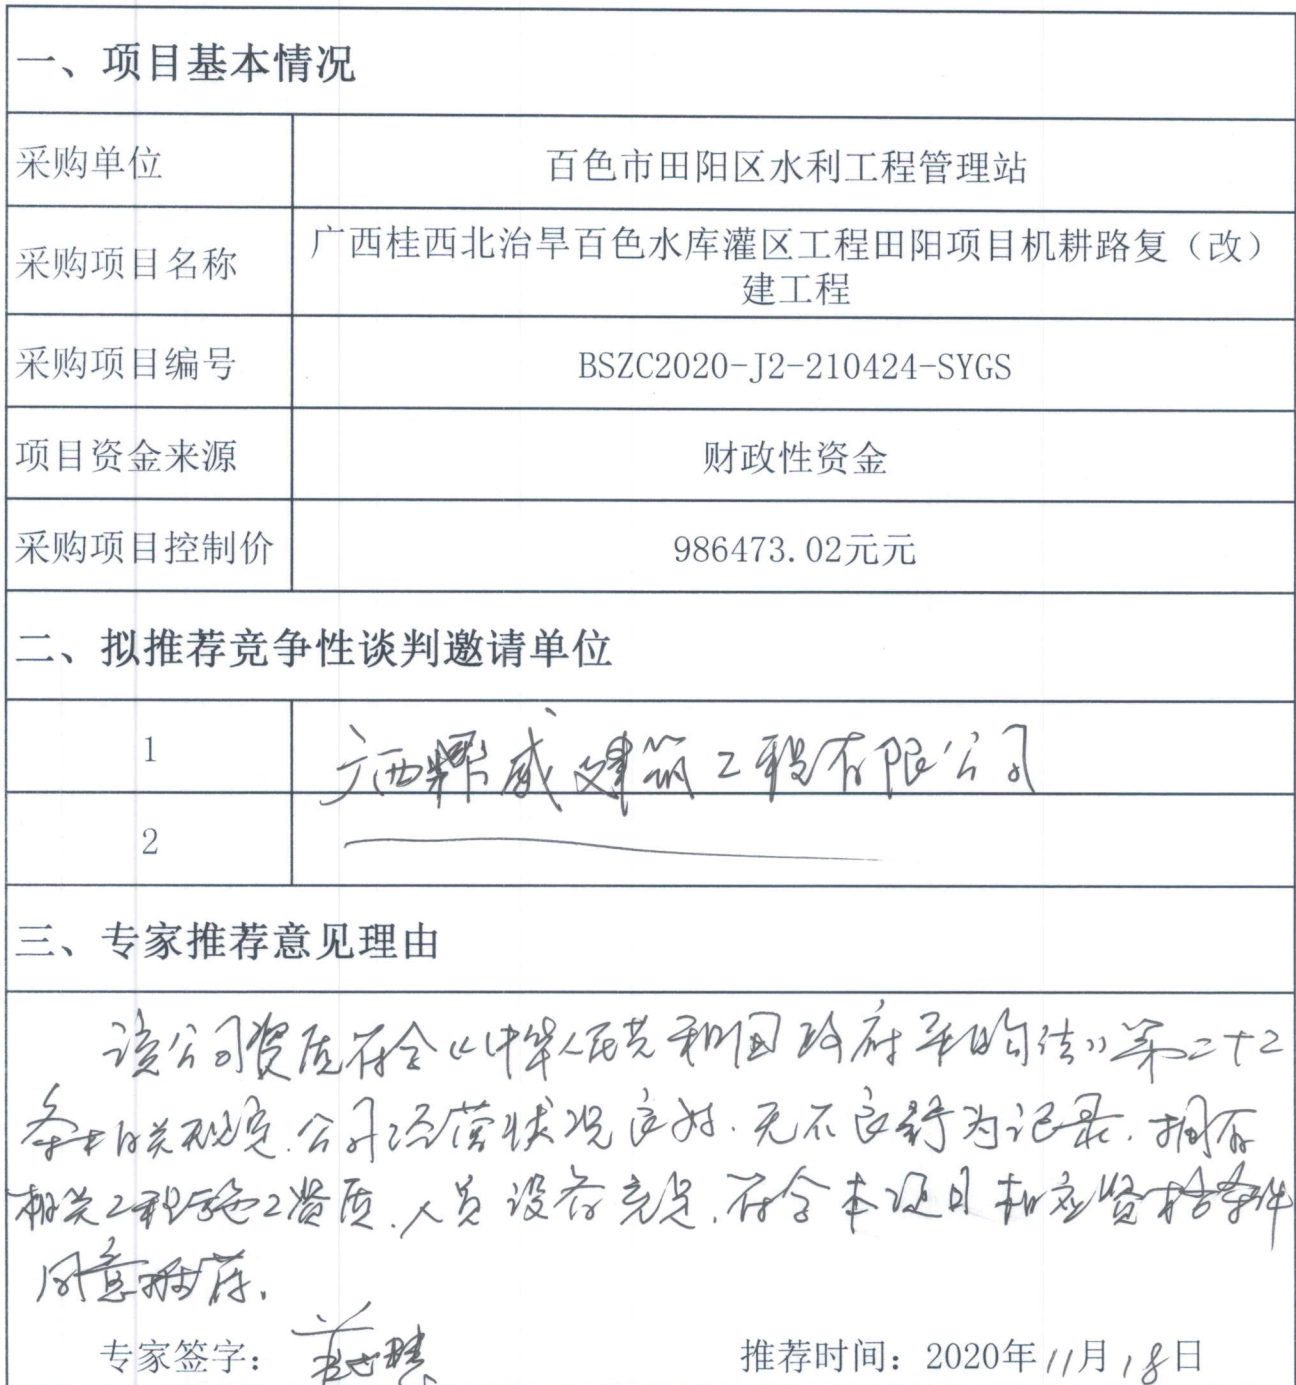 一、项目基本情况
采购单位
百色市田阳区水利工程管理站
采购项目名称
广西桂西北治旱百色水库灌区工程田阳项目机耕路复（改）
建工程
采购项目编号
BSZC2020-J2-210424-SYGS
项目资金来源
财政性资金
采购项目控制价
986473.02元元
二、拟推荐竞争性谈判邀请单位
1
广西耀威建筑工程有限公司
2
三、专家推荐意见理由
该公司资质符合《中华人民共和国政府采购法》第二十二
条相关规定.公司经营状况良好.无不良行为记录.拥有
相关工程施工资质.人员设备充足.符合本项目相应资格条件
同意推荐.
专家签字：
推荐时间：2020年11月18日